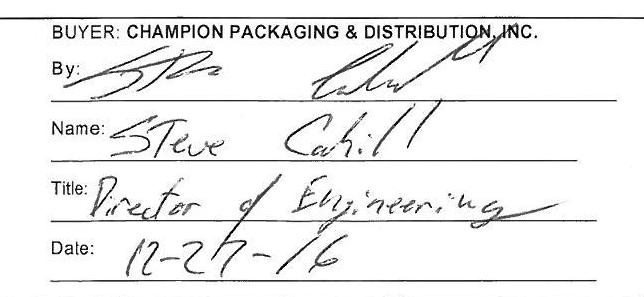 BUYER: CHAMPION PACKAGING & DISTRIBUTION, INC.
By: Steve Cahill
Name: Steve Cahill
Title: Director of Engineering
Date: 12-27-16